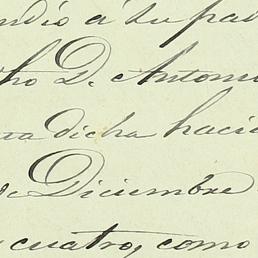 ndió a su pad
cho D. Antonio
sta dicha hacie
de Diciembre
y cuatro, como